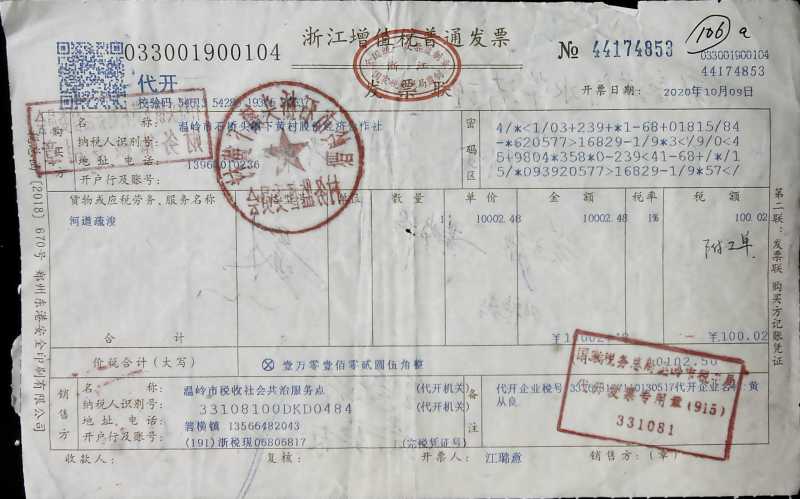 033001900104
浙江增值税普通发票
发票联
№ 44174853
106 a
033001900104
44174853
代开
校验码 54613 54286 19306
开票日期: 2020年10月09日
购买方
名 称: 温岭市石桥头镇下黄村股份经济合作社
纳税人识别号:
地 址、电 话:
开户行及账号:
密码区
4/*<1/03+239+*1-68+01815/84
-*620577>16829-1/9*3</9/0<4
5+9804*358*0-239<41-68+/*/1
5/*093920577>16829-1/9*57</
货物或应税劳务、服务名称 单位 数量 单价 金额 税率 税额
河道疏浚 1 10002.48 10002.48 1% 100.02
附工单
合计 ¥10002.48 ¥100.02
价税合计(大写) ⊗ 壹万零壹佰零贰圆伍角整
销售方
名 称: 温岭市税收社会共治服务点 (代开机关)
纳税人识别号: 33108100DKD0484 (代开机关)
地址、电话: 箬横镇 13566482043
开户行及账号: (191)浙税现06806817 (完税凭证号)
备注
代开企业税号: 代开企业名称: 黄从良
代开发票专用章(915)
331081
收款人: 复核: 开票人: 江璐薇 销售方:(章)
第二联:发票联 购买方记账凭证
〔2018〕670号 郑州东港安全印刷有限公司